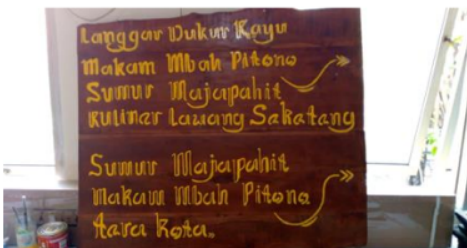 Langgar Dukur Kayu
Makam Mbah Pitono
Sumur Majapahit
Kuliner Lawang Sakatang
Sumur Majapahit
Makam Mbah Pitono
Kota.